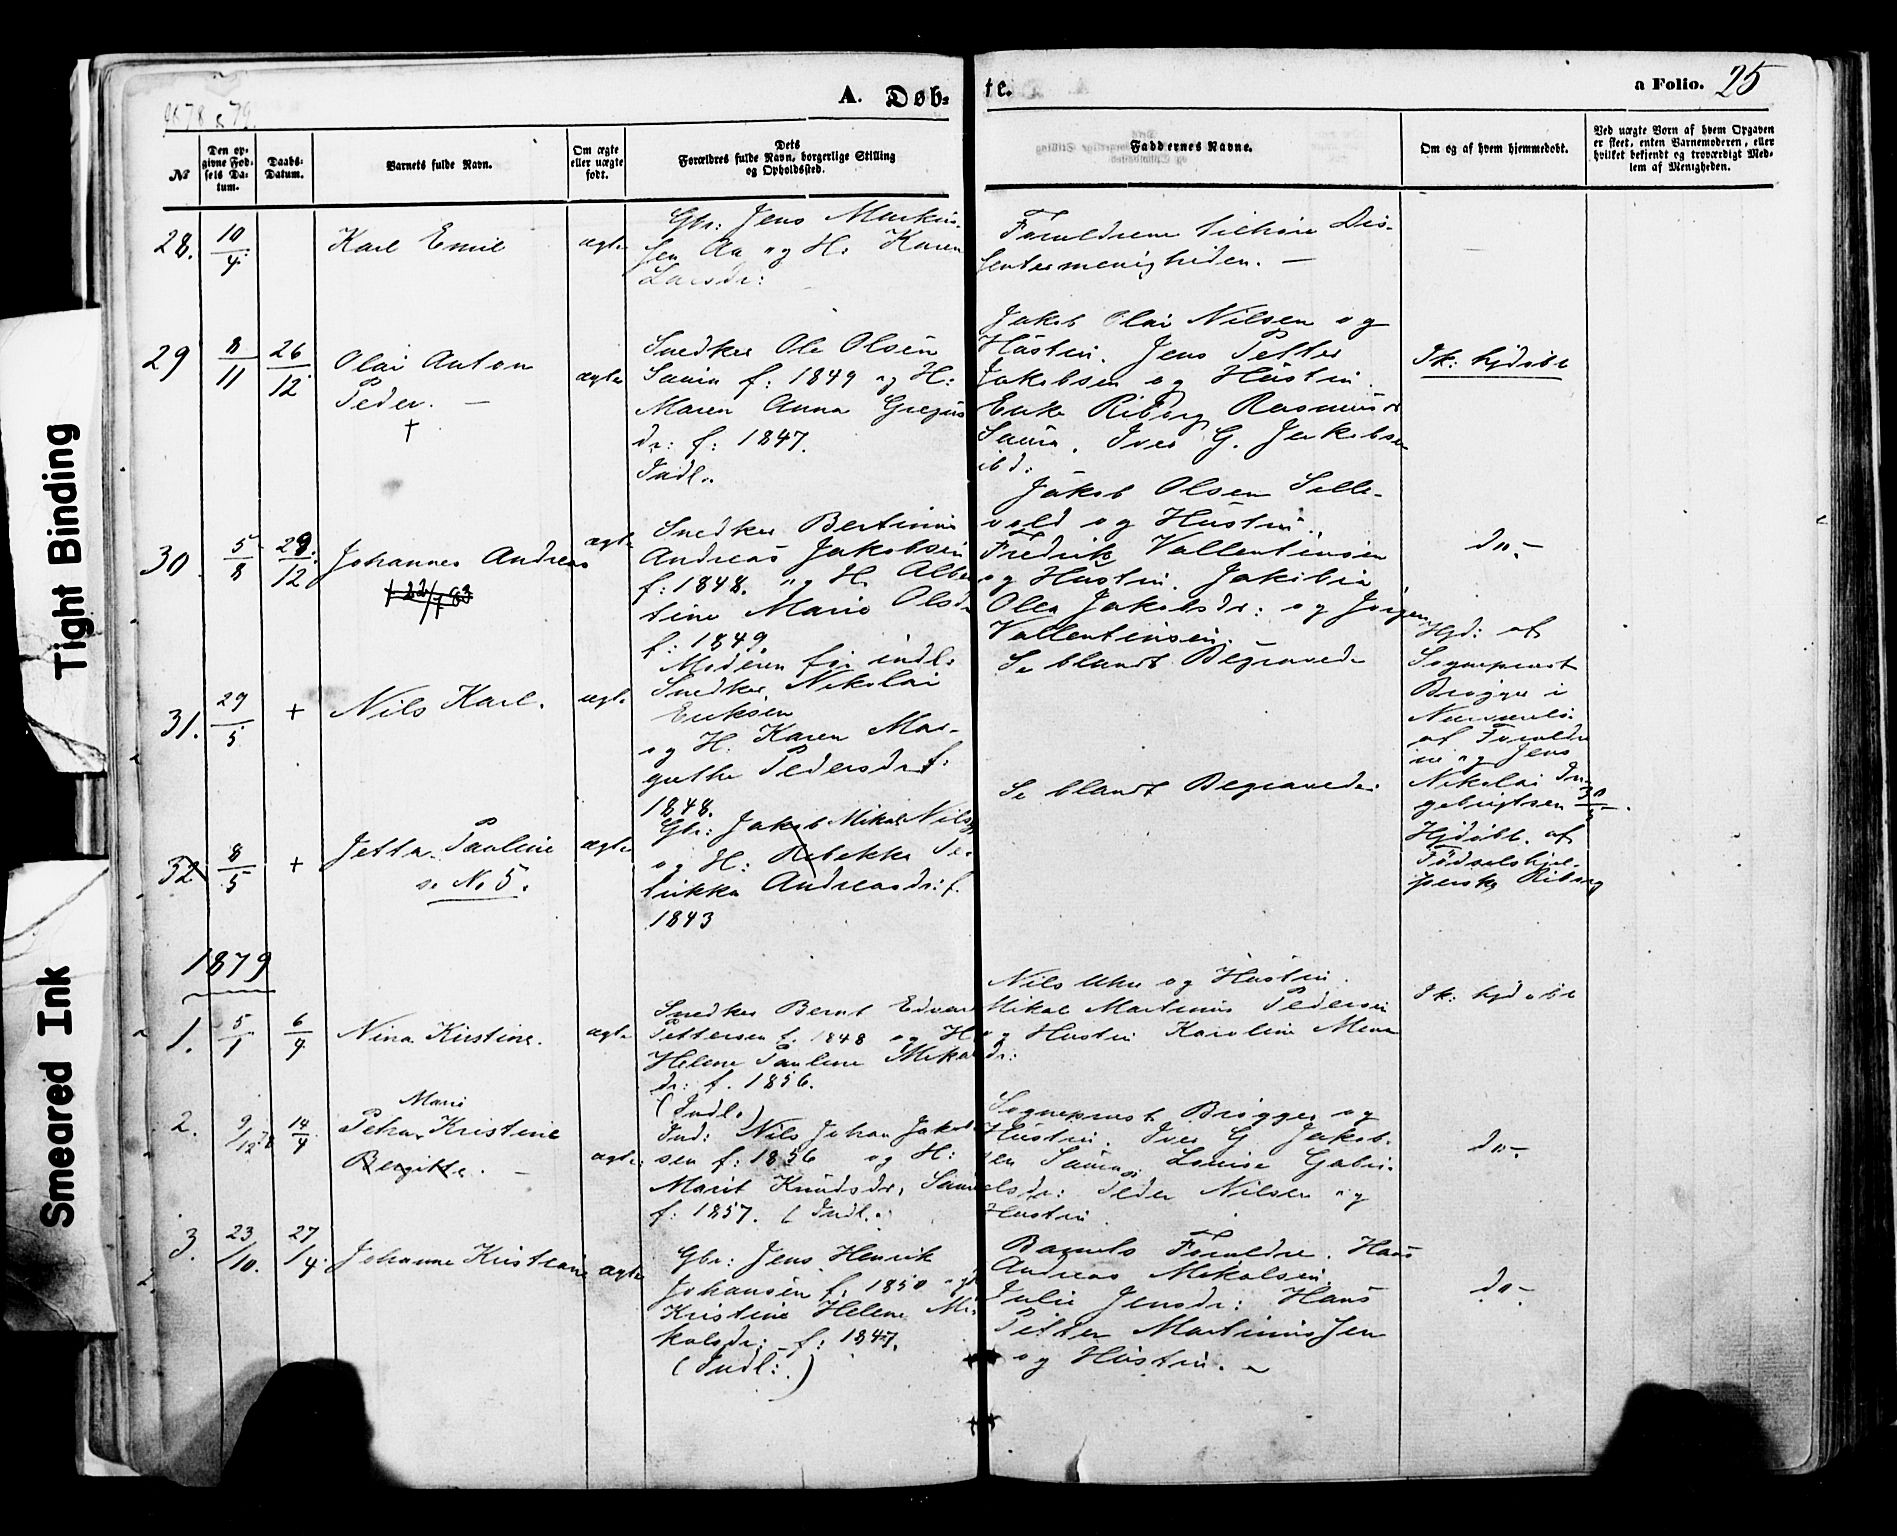 1878 & 79.
A. Døb-
te.
a Folio. 25
№
Den op-
givne Fød-
sels Da-
tum.
Daabs-
Datum.
Barnets fulde Navn.
Om ægte
eller uægte
født.
Dets
Forældres fulde Navn, borgerlige Stilling
og Opholdssted.
Faddernes Navne.
Om og af hvem hjemmedøbt.
Ved uægte Børn af hvem Opgaven
er skeet, enten Barnemoderen, eller
hvilket bekjendt og troværdigt Med-
lem af Menigheden.
28. 10/4. Karl Emil ægte
Gbr: Jens Markus-
sen Aa og H. Karen
Larsdr:
Forældrene tilhøre Dis-
sentermenigheden. —
29 8/11 26/12 Olai Anton
Peder. —
†
ægte
Snedker Ole Olsen
f: 1849 og H:
Maren Anna Gregus
dr: f: 1847.
Indl.
Jakob Olai Nilsen og
Hustru. Jens Petter
Jakobsen og Hustru.
Enke Riborg Rasmusd
Iver G. Jakobsen
ibd:
Sk: hjdøbt
30 5/8 29/12 Johannes Andreas
† 22/7 83
ægte
Snedker Bertinus
Andreas Jakobsen
f: 1848. og H. Alber
tine Marie Olsd
f: 1849.
Moderen før indl.
Jakob Olsen Selle-
vold og Hustru.
Fredrik Vallentinsen
og Hustru. Jakobia
Olea Jakobsdr: og Jørgen
Vallentinsen. —
do. —
31. 29/5 + Nils Karl. ægte
Snedker Nikolai
Eriksen
og H. Karen Mar-
grethe Pedersdr f:
1848.
Se blandt Begravede
Hjd: af
Sogneprest
Brøgger i
Nærværelse
af Forældre
ne og Jens
Nikolai In-
gebrigtsen
32 8/5 + Jetta Pauline
s. No 5.
ægte
Gbr: Jakob Mikal Nils
og H: Rebekka
Andreasdr: f.
1843
Se blandt Begravede.
Hjdøbt. af
Fødselshjæl-
perske Riborg
1879
1. 5/1 6/4 Nina Kristine. ægte
Snedker Bernt Edvar
Pettersen f. 1848 og H
Helene Pauline Mikal
dr: f. 1856.
(Indl.)
Nils Uhre og Hustru.
Mikal Martinus Pedersen
og Hustru Karoline
dr:
Sk: hjdøbt
2. 9/12 78 14/4 Petra Marie Kristine
Bergitte. —
ægte
Ind: Nils Johan Jakob
sen f: 1856 og H:
Marit Knudsdr,
f: 1857. (Indl.
Sogneprest Brøgger og
Hustru. Iver G. Jakob-
sen Louise Gabri-
elsdr: Peder Nilsen og
Hustru.
do. —
3. 23/10. 27/4. Johanne Kristiane ægte
Gbr: Jens Henrik
Johansen f. 1850 og
Kristine Helene Mi-
kalsdr: f: 1847.
(Indl:.)
Barnets Forældre. Hans
Andreas Mikalsen.
Julie Jensdr: Hans
Petter Martinussen
og Hustru. —
do —
Tight Binding
Smeared Ink